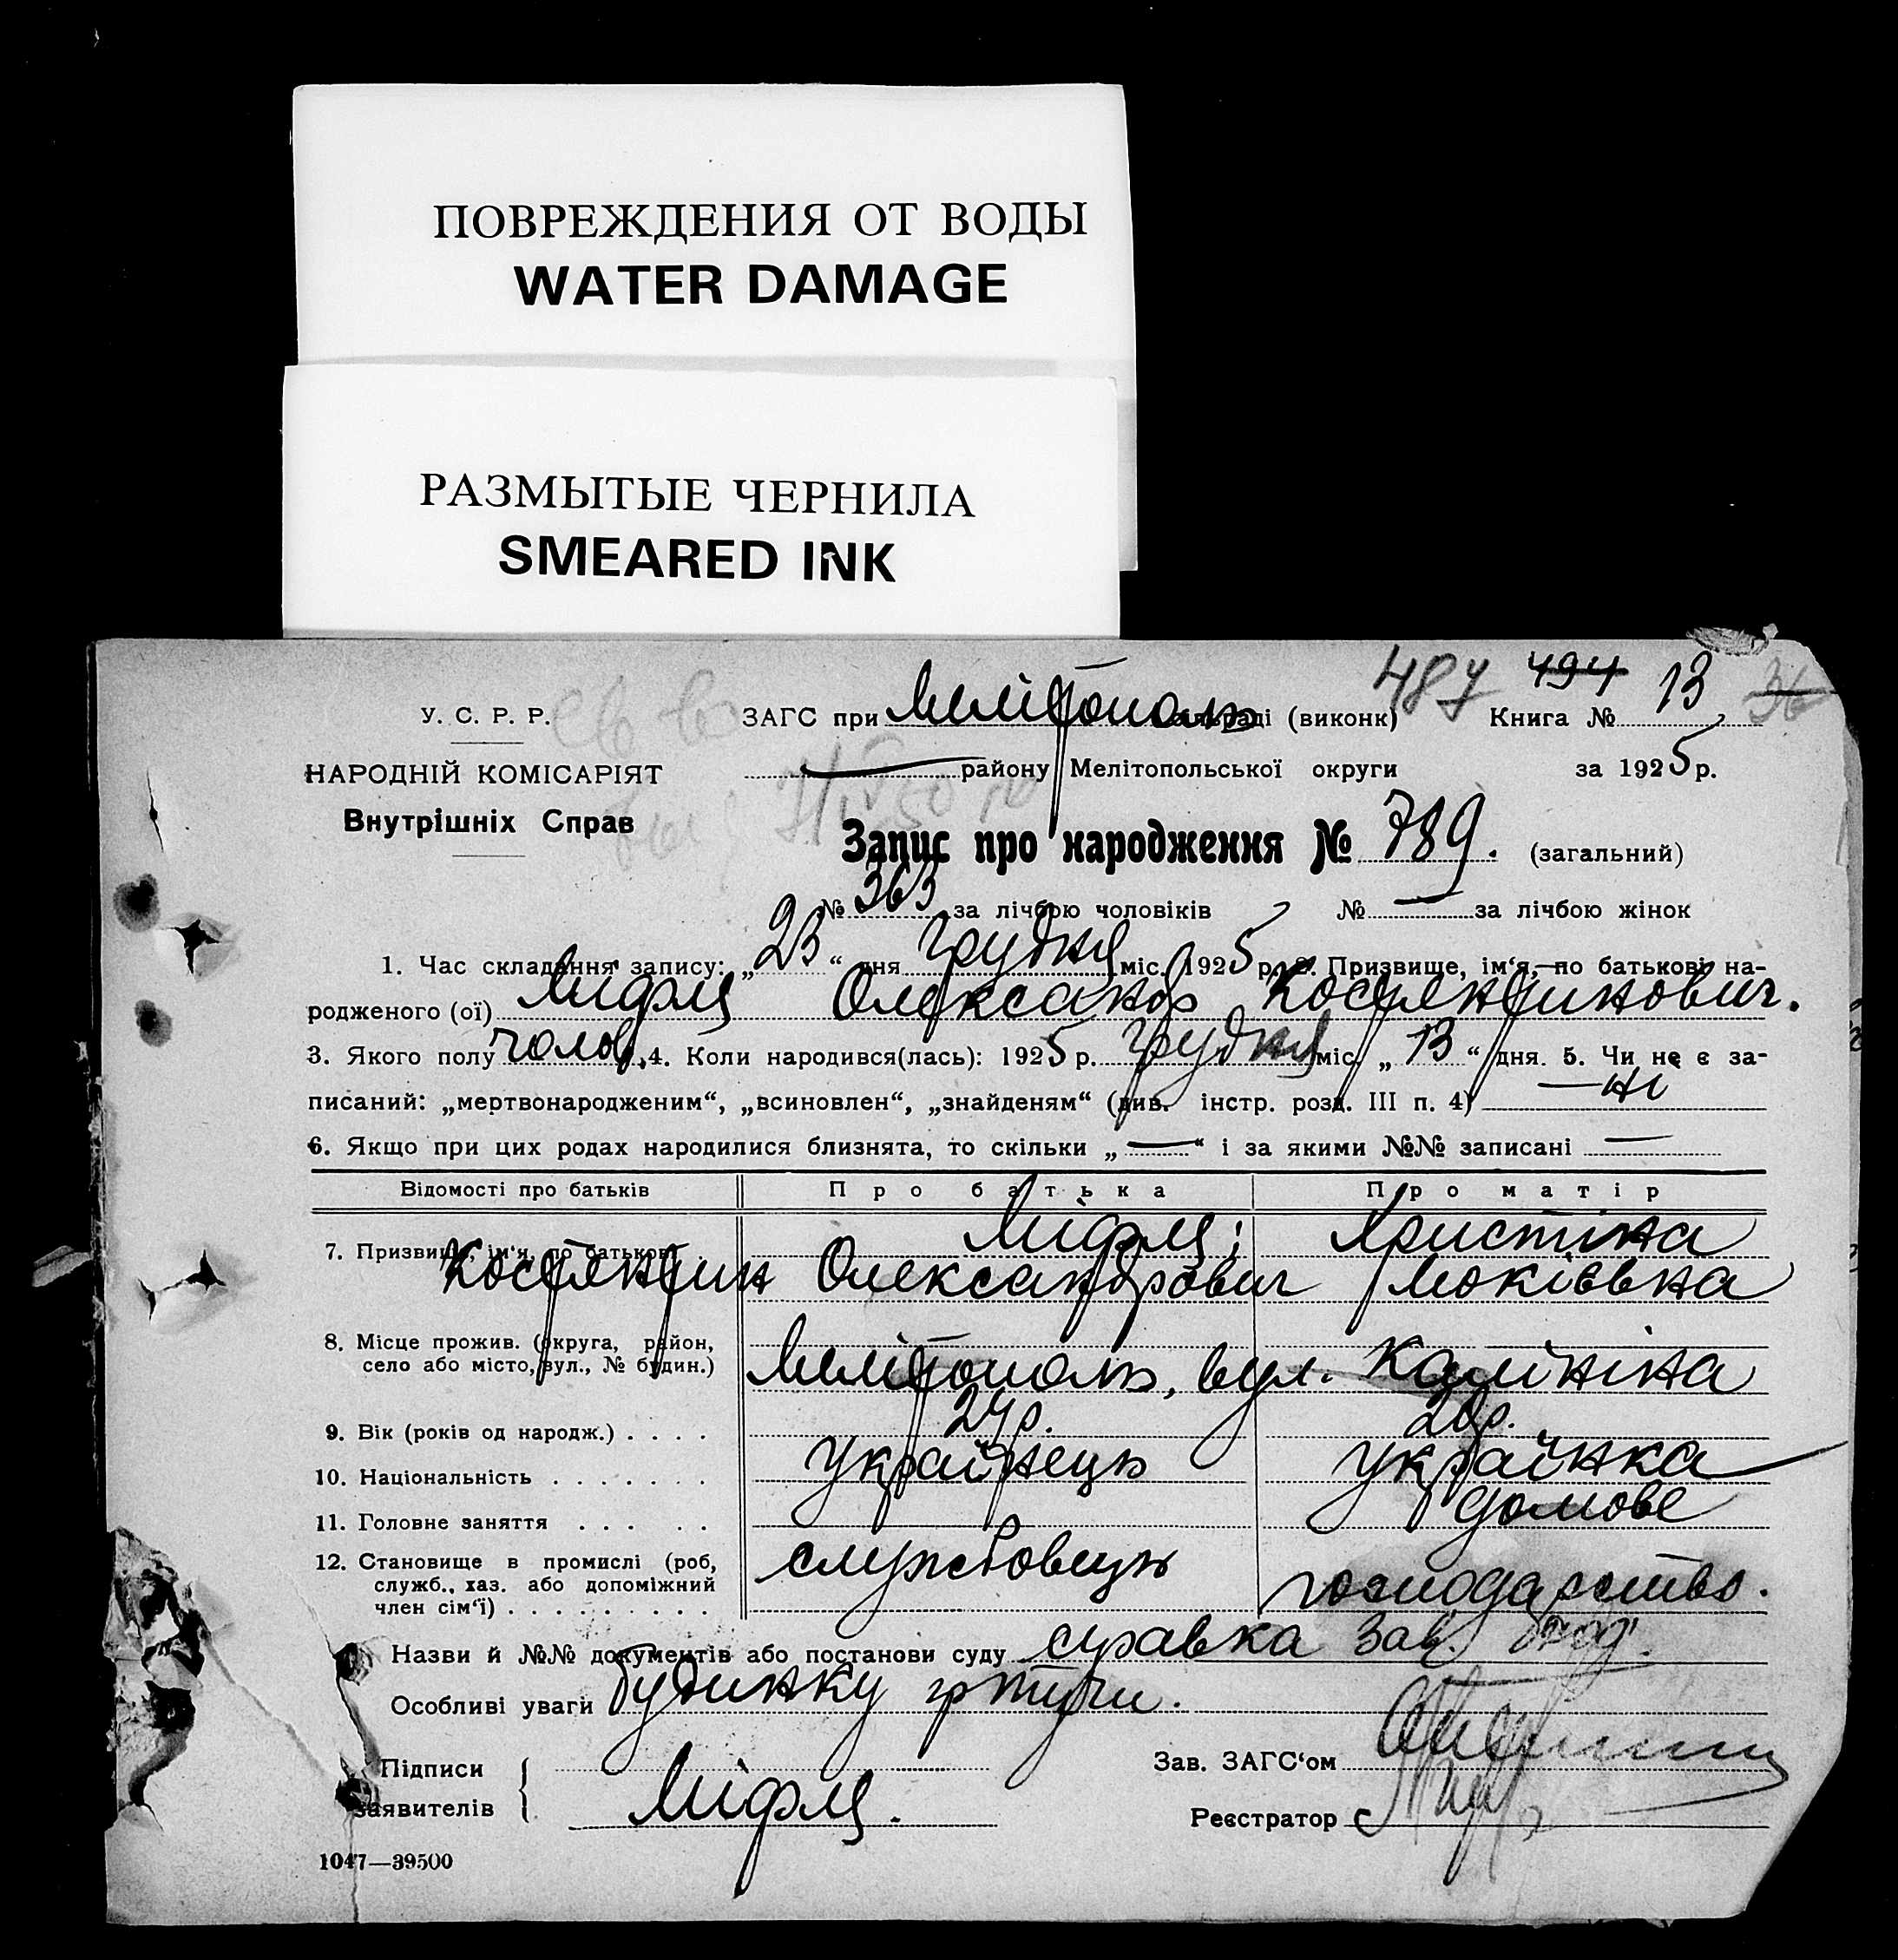 ПОВРЕЖДЕНИЯ ОТ ВОДЫ
WATER DAMAGE
РАЗМЫТЫЕ ЧЕРНИЛА
SMEARED INK
487 494 13 36
У. С. Р. Р. ЗАГС при Мелітополь (виконк) Книга №
НАРОДНІЙ КОМІСАРІЯТ — району Мелітопольської округи за 1925 р.
Внутрішніх Справ
Запис про народження № 789. (загальний)
№ 363 за лічбою чоловіків № — за лічбою жінок
1. Час складання запису: „23“ дня Грудня міс. 1925 р. 2. Призвище, ім‘я, по батькові на-
родженого (ої) Олександр Костянтинович.
3. Якого полу чолов. 4. Коли народився(лась): 1925 р. Грудня міс. „13“ дня. 5. Чи не є за-
писаний: „мертвонародженим“, „всиновлен“, „знайденям“ (див. інстр. розд. III п. 4) — ні
6. Якщо при цих родах народилися близнята, то скільки „—“ і за якими №№ записані —
Відомості про батьків Про батька Про матір
7. Призвище, ім‘я, по батькові . Христина
Костянтин Олександрович Мокіївна
8. Місце прожив. (округа, район,
село або місто, вул., № будин.) Мелітополь, вул. Калініна
9. Вік (років од народж.) . . . . 24р. 20р.
10. Національність . . . . . . . Українець Українка
11. Головне заняття . . . . . домове
12. Становище в промислі (роб, службовець
служб., хаз. або допоміжний господарство.
член сім‘ї) . . . . . . . . .
Назви й №№ документів або постанови суду справка Зав.
Особливі уваги будинку
Підписи Зав. ЗАГС‘ом
заявителів Реєстратор
1047—39500